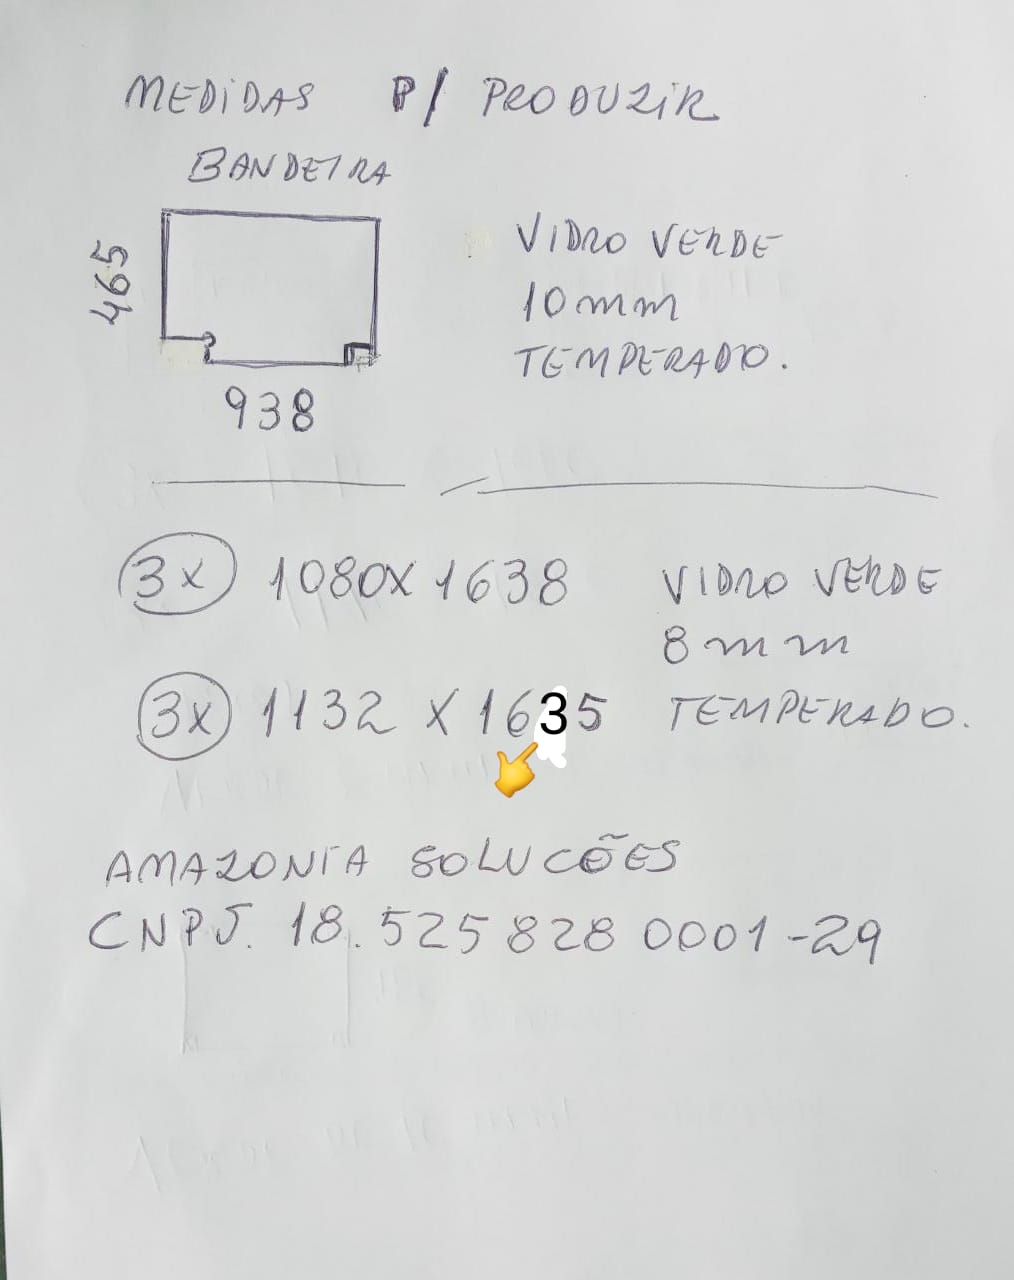 MEDIDAS P/ PRODUZIR
BANDEIRA
465
938
VIDRO VERDE
10mm
TEMPERADO.
3x 1080x1638
VIDRO VERDE
8mm
3x 1132 x 1635
TEMPERADO.
AMAZONIA SOLUCÕES
CNPJ. 18.525 828 0001-29